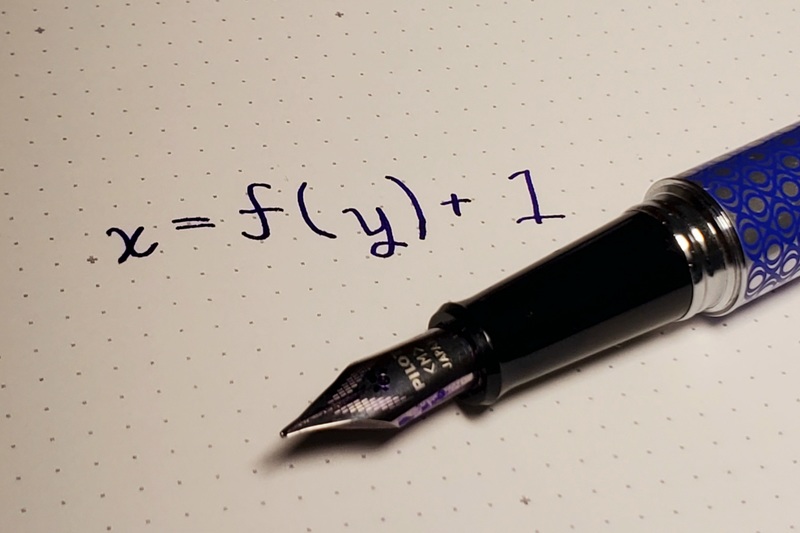 x = f(y) + 1
PILOT
<M>
JAPAN